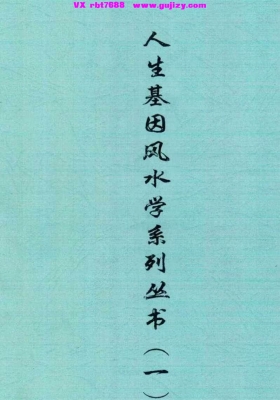 VX rbt7688 www.gujizy.com
人生基因风水学系列丛书(一)